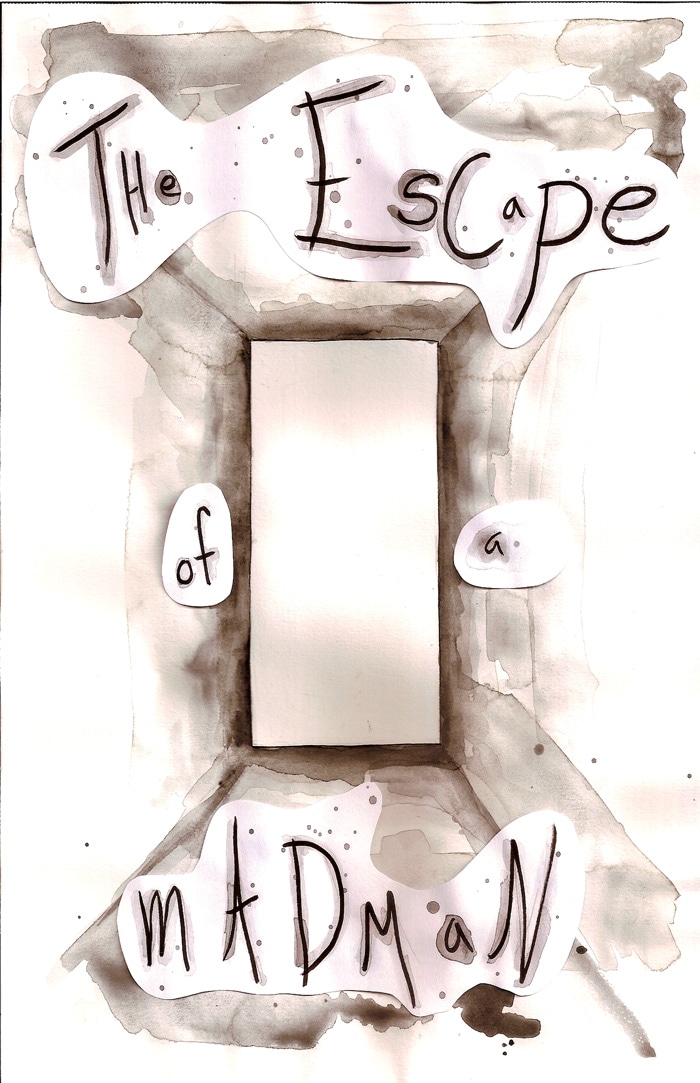 THe EsCape
of a
mADMaN